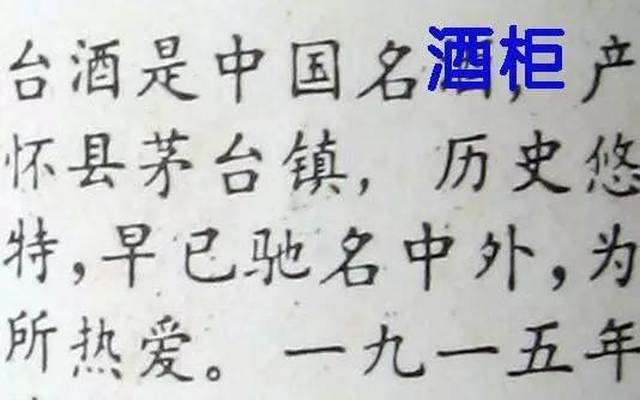 台酒是中国名酒，产
酒柜
怀县茅台镇，历史悠
特，早已驰名中外，为
所热爱。一九一五年